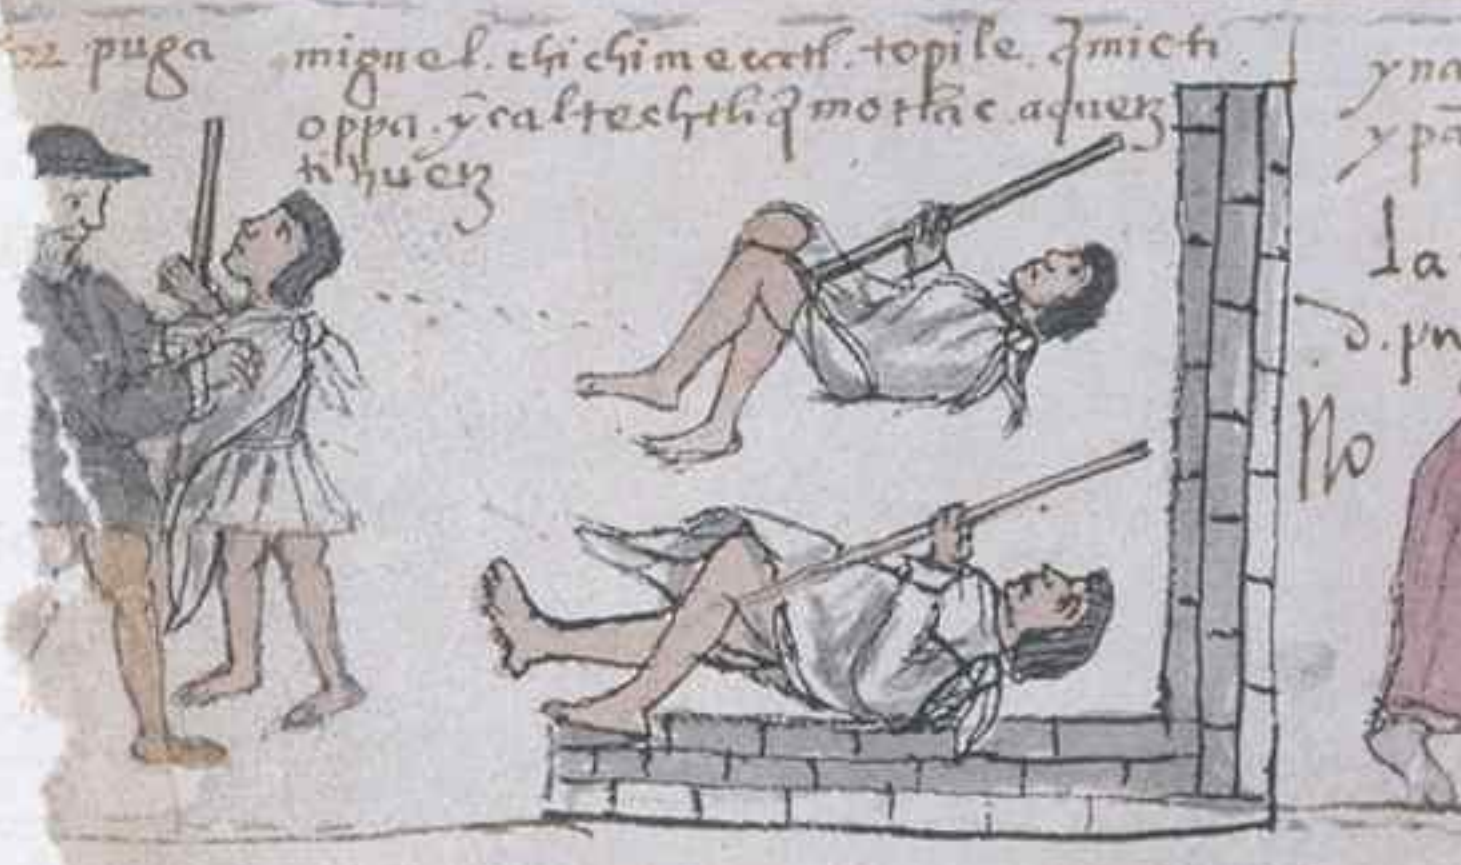 puga
miguel. chichimecatl. topile. q̃micti.
oppa. ỹcaltechtli q̃ motlac. aquetz
tihuetz
yna
ypa
la
d. pu
No